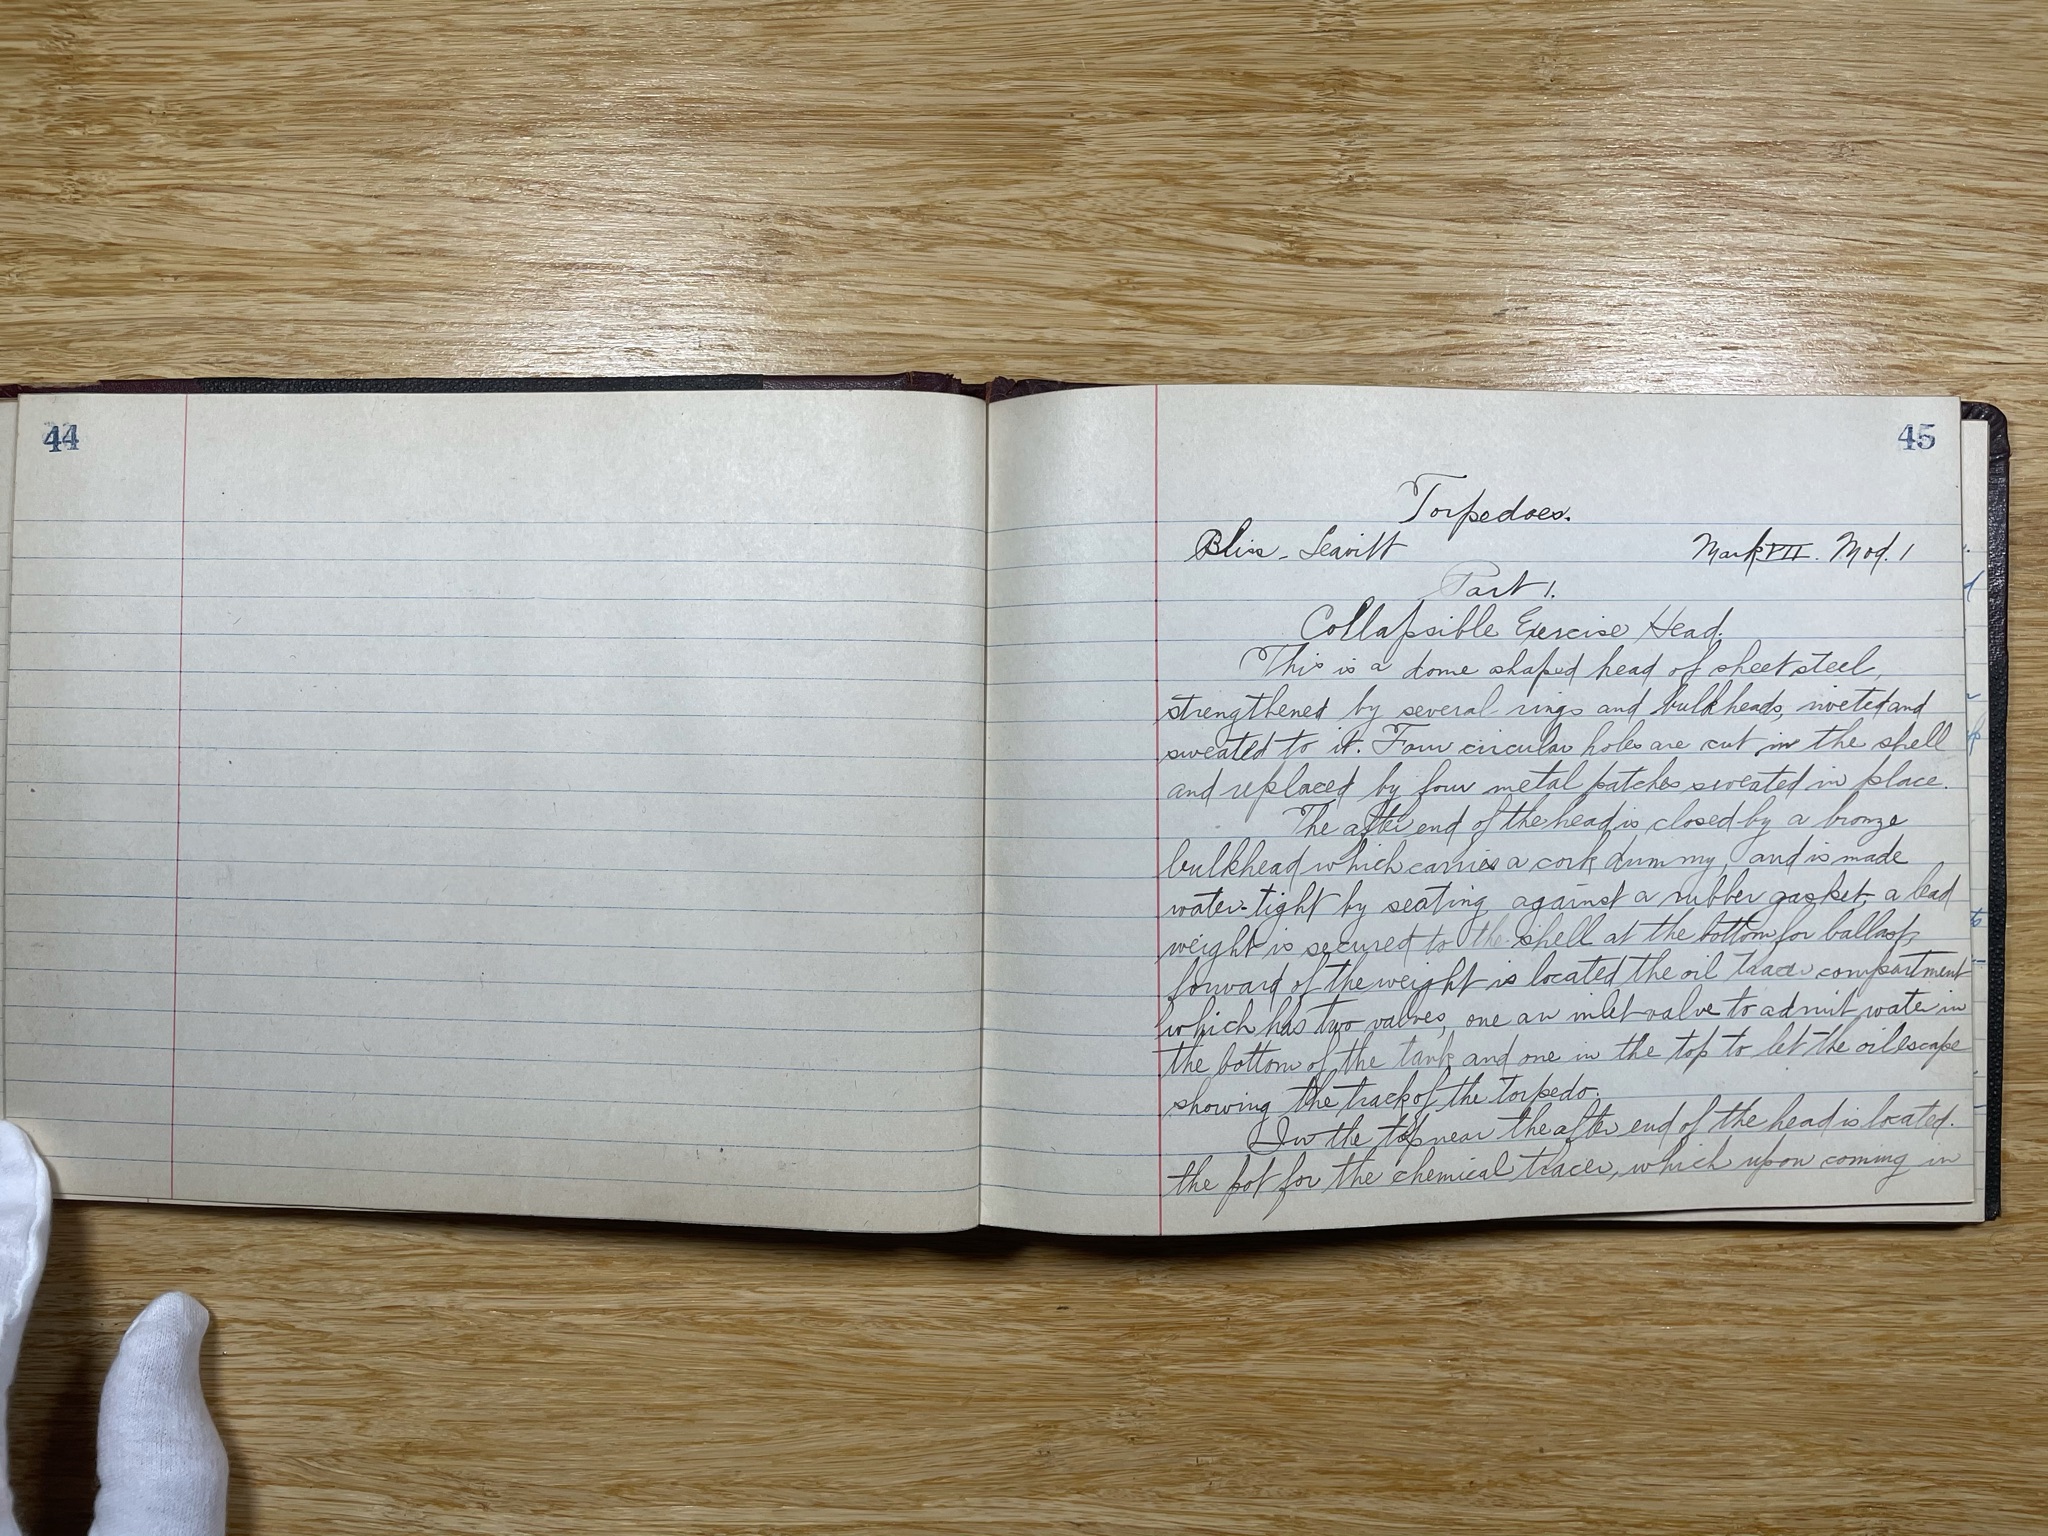 44
45
Torpedoes.
Bliss - Leavitt Mark VII. Mod. 1
Part 1.
Collapsible Exercise Head.
This is a dome shaped head of sheet steel,
strengthened by several rings and bulkheads, riveted and
sweated to it. Four circular holes are cut in the shell
and replaced by four metal patches sweated in place.
The after end of the head is closed by a bronze
bulkhead which carries a cork dummy, and is made
water-tight by seating against a rubber gasket, a lead
weight is secured to the shell at the bottom for ballast,
forward of the weight is located the oil tracer compartment
which has two valves, one an inlet valve to admit water in
the bottom of the tank and one in the top to let the oil escape
showing the track of the torpedo.
In the top near the after end of the head is located.
the pot for the chemical tracer, which upon coming in